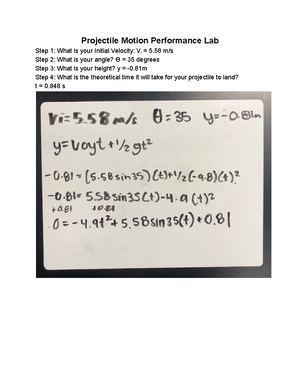 Projectile Motion Performance Lab
Step 1: What is your Initial Velocity: Vᵢ = 5.58 m/s
Step 2: What is your angle? Θ = 35 degrees
Step 3: What is your height? y = -0.81m
Step 4: What is the theoretical time it will take for your projectile to land?
t = 0.848 s
Vi=5.58m/s θ=35 y=-0.81m
y=Voyt+1/2gt²
-0.81=(5.58sin35)(t)+1/2(-9.8)(t)²
-0.81=5.58sin35(t)-4.9(t)²
+0.81 +0.81
0=-4.9t²+5.58sin35(t)+0.81